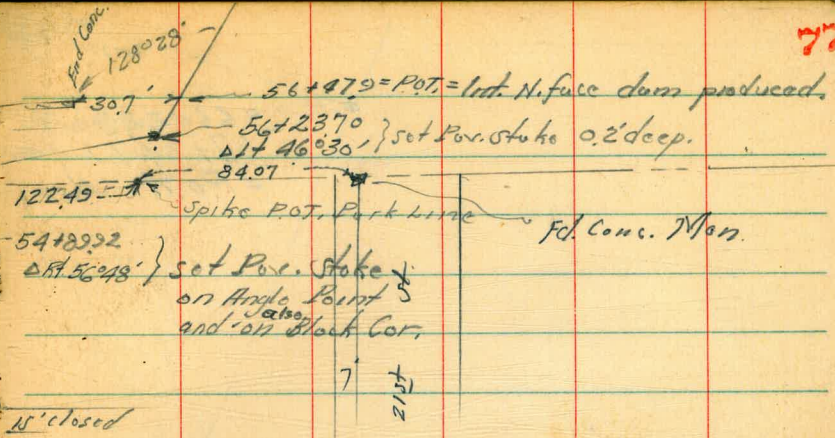 77
End Conc.
128°28'
30.7'
56+47.9 = P.O.T. = Int. N. face dam produced.
56+23.70
Δ Lt 46°30' } set Pav. stake 0.2' deep.
84.07
122.49
Spike P.O.T. Park Line
Fd. Conc. Mon.
54+89.92
Δ Rt 56°48' } set Pav. Stake
on Angle Point
also
and on Block Cor.
7'
21st st
15' closed